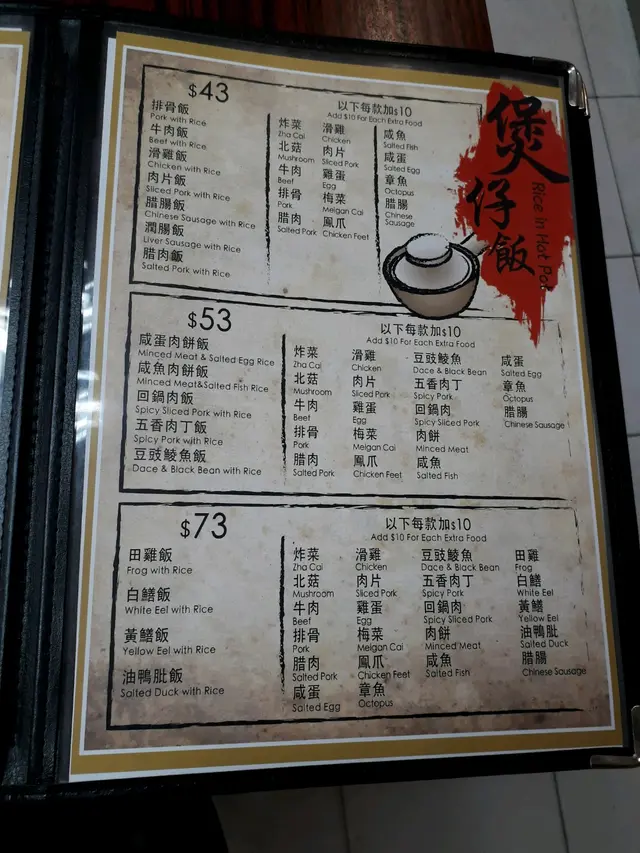 煲仔飯
Rice in Hot Pot
$43
排骨飯
Pork with Rice
牛肉飯
Beef with Rice
滑雞飯
Chicken with Rice
肉片飯
Sliced Pork with Rice
腊腸飯
Chinese Sausage with Rice
潤腸飯
Liver Sausage with Rice
腊肉飯
Salted Pork with Rice
以下每款加$10
Add $10 For Each Extra Food
炸菜
Zha Cai
北菇
Mushroom
牛肉
Beef
排骨
Pork
腊肉
Salted Pork
滑雞
Chicken
肉片
Sliced Pork
雞蛋
Egg
梅菜
Meigan Cai
鳳爪
Chicken Feet
咸魚
Salted Fish
咸蛋
Salted Egg
章魚
Octopus
腊腸
Chinese
Sausage
$53
咸蛋肉餅飯
Minced Meat & Salted Egg Rice
咸魚肉餅飯
Minced Meat&Salted Fish Rice
回鍋肉飯
Spicy Sliced Pork with Rice
五香肉丁飯
Spicy Pork with Rice
豆豉鯪魚飯
Dace & Black Bean with Rice
以下每款加$10
Add $10 For Each Extra Food
炸菜
Zha Cai
北菇
Mushroom
牛肉
Beef
排骨
Pork
腊肉
Salted Pork
滑雞
Chicken
肉片
Sliced Pork
雞蛋
Egg
梅菜
Meigan Cai
鳳爪
Chicken Feet
豆豉鯪魚
Dace & Black Bean
五香肉丁
Spicy Pork
回鍋肉
Spicy Sliced Pork
肉餅
Minced Meat
咸魚
Salted Fish
咸蛋
Salted Egg
章魚
Octopus
腊腸
Chinese Sausage
$73
田雞飯
Frog with Rice
白鱔飯
White Eel with Rice
黃鱔飯
Yellow Eel with Rice
油鴨肶飯
Salted Duck with Rice
以下每款加$10
Add $10 For Each Extra Food
炸菜
Zha Cai
北菇
Mushroom
牛肉
Beef
排骨
Pork
腊肉
Salted Pork
咸蛋
Salted Egg
滑雞
Chicken
肉片
Sliced Pork
雞蛋
Egg
梅菜
Meigan Cai
鳳爪
Chicken Feet
章魚
Octopus
豆豉鯪魚
Dace & Black Bean
五香肉丁
Spicy Pork
回鍋肉
Spicy Sliced Pork
肉餅
Minced Meat
咸魚
Salted Fish
田雞
Frog
白鱔
White Eel
黃鱔
Yellow Eel
油鴨肶
Salted Duck
腊腸
Chinese Sausage